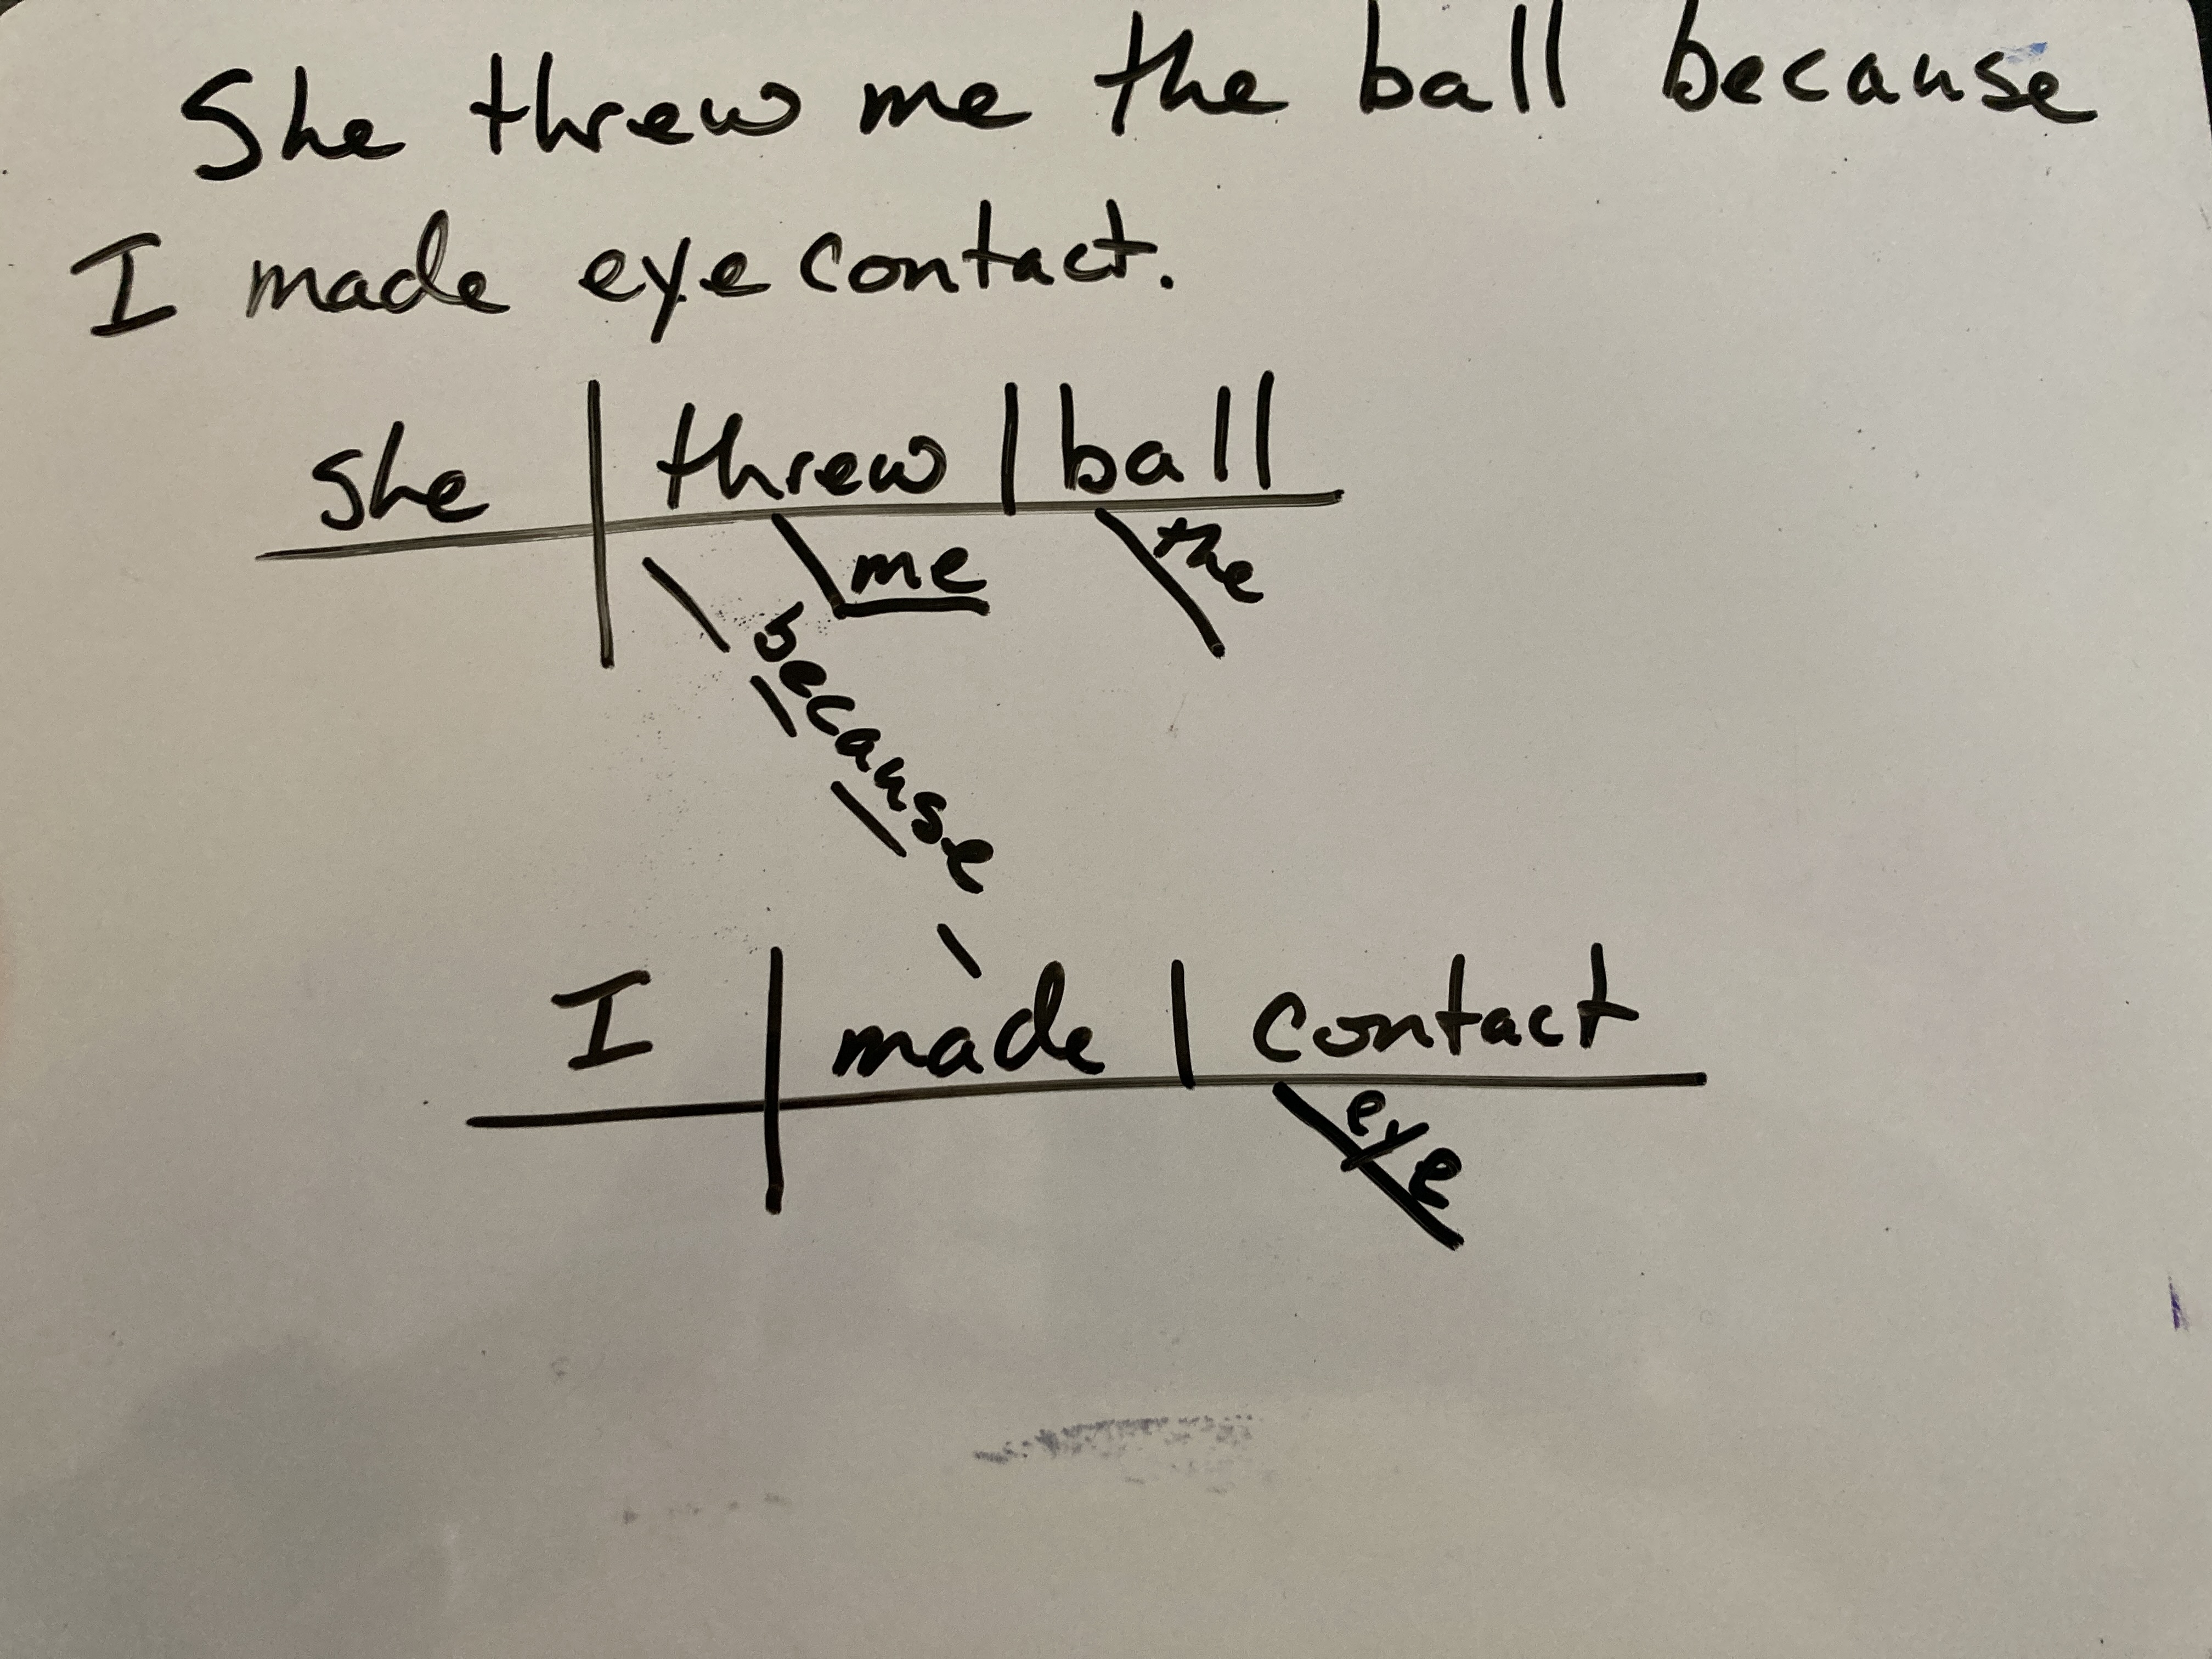 She threw me the ball because
I made eye contact.
she threw ball
me the
because
I made contact
eye